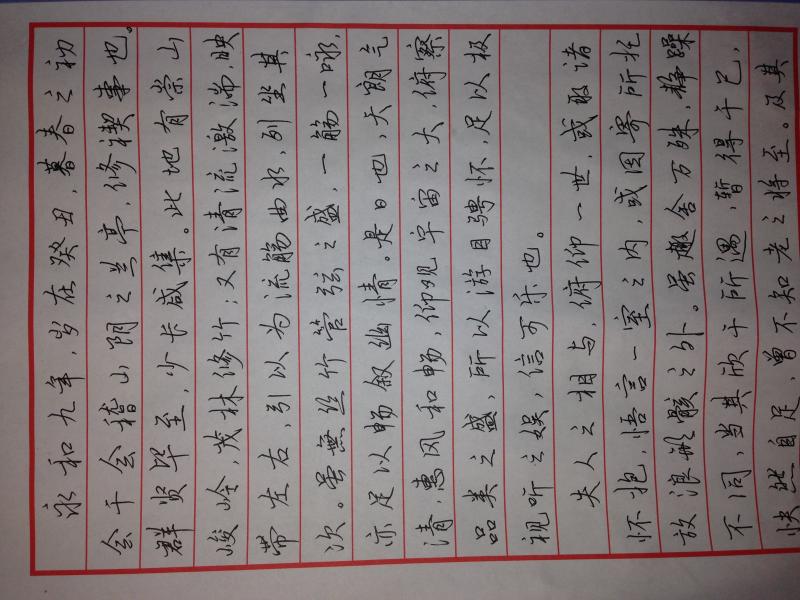 永和九年,岁在癸丑,暮春之初
会于会稽山阴之兰亭,修禊事也。
群贤毕至,少长咸集。此地有崇山
峻岭,茂林修竹;又有清流激湍,映
带左右,引以为流觞曲水,列坐其
次。虽無丝竹管弦之盛,一觞一咏,
亦足以畅叙幽情。是日也,天朗气
清,惠风和畅,仰观宇宙之大,俯察
品类之盛,所以游目骋怀,足以极
视听之娱,信可乐也。
夫人之相与,俯仰一世,或取诸
怀抱,悟言一室之内,或因寄所托
放浪形骸之外。虽趣舍万殊,静躁
不同,当其欣于所遇,暂得于己,
快然自足,曾不知老之将至。及其